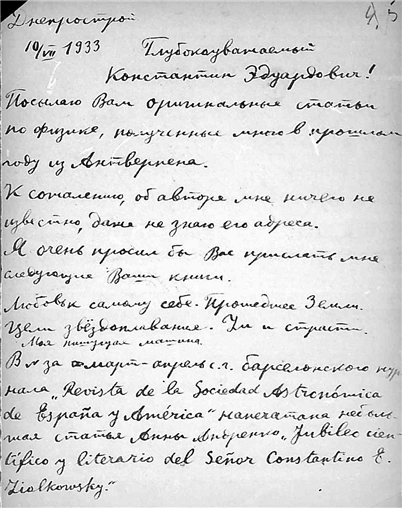 Днепрострой
10/VII 1933 Глубокоуважаемый
Константин Эдуардович!
Посылаю Вам оригинальные статьи
по физике, полученные мною в прошлом
году из Антверпена.
К сожалению, об авторе мне ничего не
известно, даже не знаю его адреса.
Я очень просил бы Вас прислать мне
следующие Ваши книги.
Любовь к самому себе. Прошедшее Земли.
Цели звёздоплавания. Ум и страсти.
Моя пишущая машина.
В № за март-апрель с.г. барселонского жур
нала „Revista de la Sociedad Astronómica
de España y América" напечатана неболь
шая статья Анны Андренко „Jubileo cien
tífico y literario del Señor Constantino E.
Ziolkowsky."